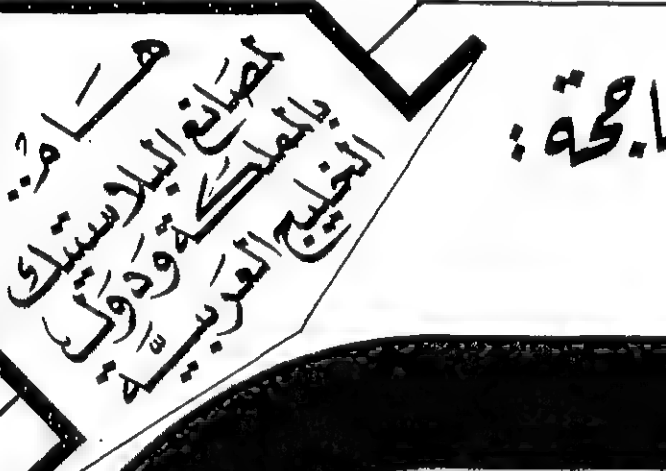 هام
لمصانع البلاستيك
بالمملكة ودول
الخليج العربية